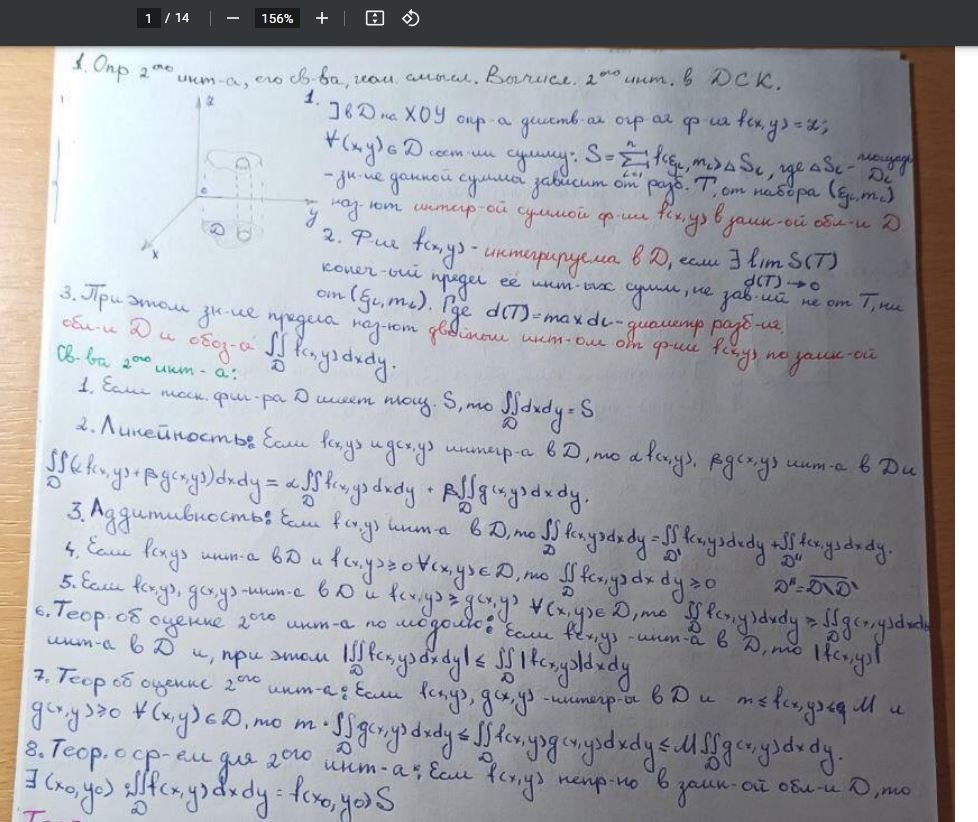 1 / 14 156%
1. Опр 2ого инт-а, его св-ва, геом. смысл. Вычисл. 2ого инт. в ДСК.
1. ] в D на XOY опр-а действ-ая огр-ая ф-ия f(x,y) = z;
∀(x,y)∈D сост-им сумму: S = ∑ⁿᵢ₌₁ f(ξi, mi) ΔSi, где ΔSi - площадь Di
- зн-ие данной суммы зависит от разб. T, от набора (ξi, mi)
наз-ют интегр-ой суммой ф-ии f(x,y) в замк-ой обл-и D
z
y
x
o
D
2. Ф-ие f(x,y) - интегрируема в D, если ∃ lim S(T)
d(T)→0
конеч-ый предел её инт-ых сумм, не зав-ий не от T, ни
от (ξi, mi). Где d(T) = max di - диаметр разб-ия.
3. При этом зн-ие предела наз-ют двойным инт-ом от ф-ии f(x,y) по замк-ой
обл-и D и обоз-а ∬D f(x,y)dxdy.
Св-ва 2ого инт-а:
1. Если плоск. фиг-ра D имеет площ. S, то ∬D dxdy = S
2. Линейность: Если f(x,y) и g(x,y) интегр-а в D, то αf(x,y), βg(x,y) инт-а в D и
∬D(αf(x,y)+βg(x,y))dxdy = α∬D f(x,y)dxdy + β∬D g(x,y)dxdy.
3. Аддитивность: Если f(x,y) инт-а в D, то ∬D f(x,y)dxdy = ∬D' f(x,y)dxdy + ∬D'' f(x,y)dxdy.
D'' = D\D'
4. Если f(x,y) инт-а в D и f(x,y) ≥ 0 ∀(x,y)∈D, то ∬D f(x,y)dxdy ≥ 0
5. Если f(x,y), g(x,y) - инт-а в D и f(x,y) ≥ g(x,y) ∀(x,y)∈D, то ∬D f(x,y)dxdy ≥ ∬D g(x,y)dxdy
6. Теор. об оценке 2ого инт-а по модолю: Если f(x,y) - инт-а в D, то |f(x,y)|
инт-а в D и, при этом |∬D f(x,y)dxdy| ≤ ∬D |f(x,y)|dxdy
7. Теор об оценке 2ого инт-а: Если f(x,y), g(x,y) - интегр-ы в D и m ≤ f(x,y) ≤ M и
g(x,y) ≥ 0 ∀(x,y)∈D, то m·∬D g(x,y)dxdy ≤ ∬D f(x,y)g(x,y)dxdy ≤ M∬D g(x,y)dxdy.
8. Теор. о ср-ем для 2ого инт-а: Если f(x,y) непр-но в замк-ой обл-и D, то
∃ (x0, y0) ∬D f(x,y)dxdy = f(x0, y0)S